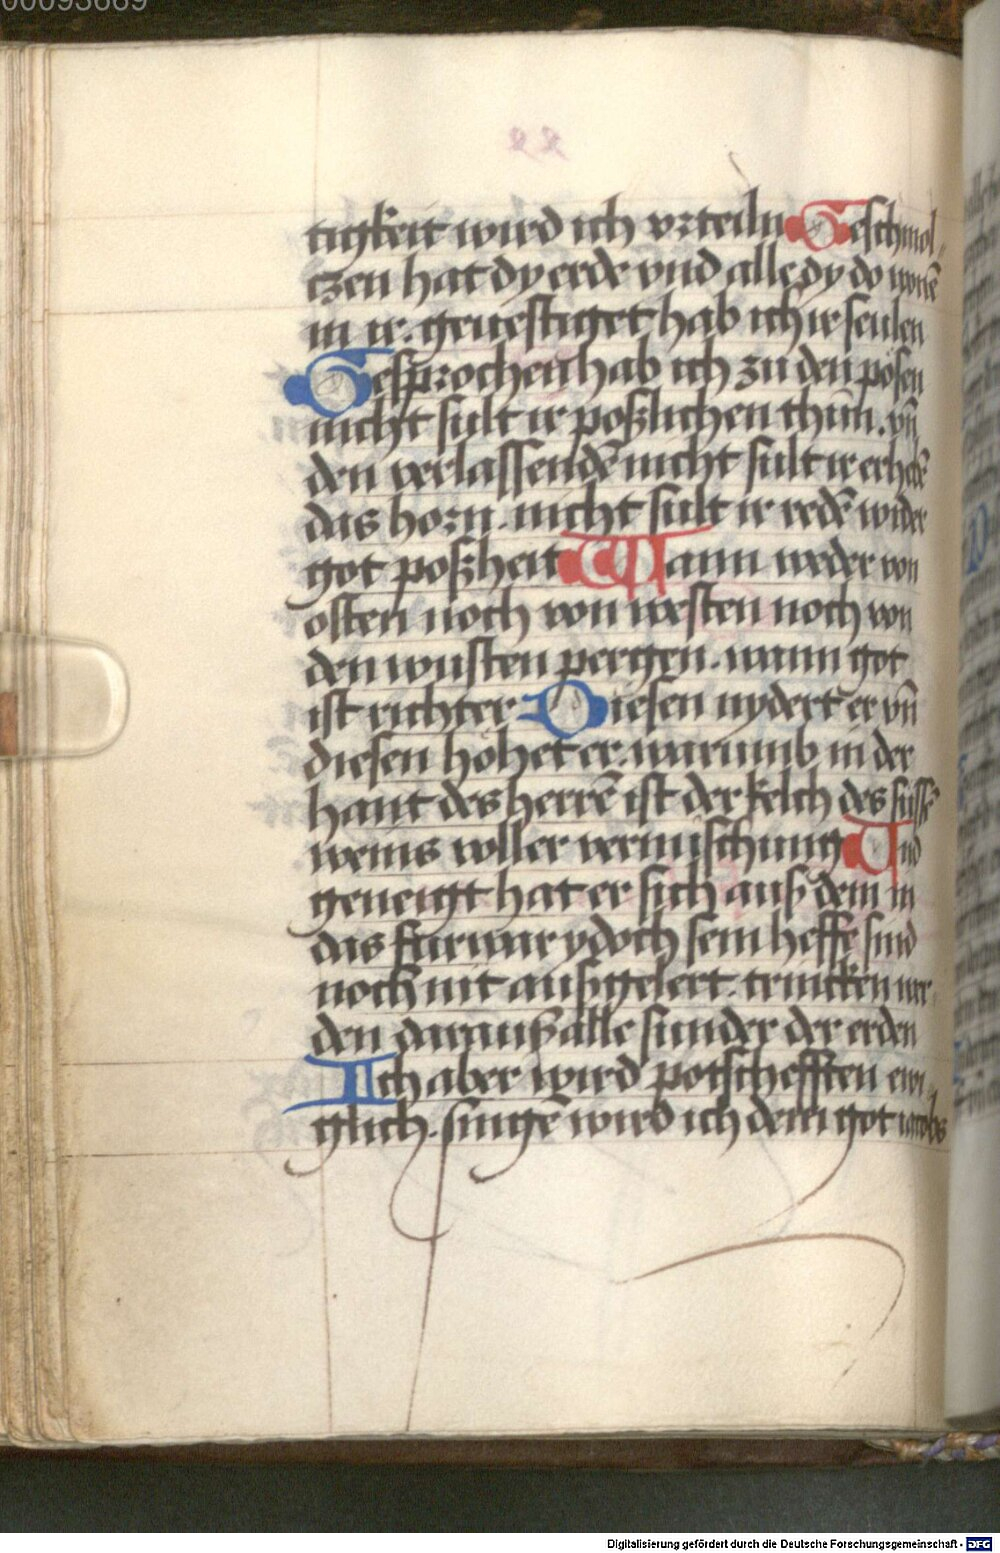 00093669
tigkeit wird ich vrteiln Geschmol-
tzen hat dy erde vnd alle dy do wonē
in ir. geuestiget hab ich ir seulen
Gesprochen hab ich zu den pösen
nicht sült ir poßlichen thün. vn̄
den verlassendē nicht sült ir erhebē
das horn. nicht sült ir redē wider
got poßheit Wann weder von
osten noch von westen noch von
den wusten pergen. wann got
ist richter Diesen nydert er vn̄
diesen höhet er. warumb in der
hant des herrē ist der kelch des süssē
weins voller vermischung Vnd
geneigt hat er sich auß dem in
das fürwar ydoch sein heffe sind
noch nit außgelert. trincken wer-
den darauß alle sunder der erden
Ich aber wird potschefften ewi
glich. singē wird ich dem got iacobs
Digitalisierung gefördert durch die Deutsche Forschungsgemeinschaft - DFG